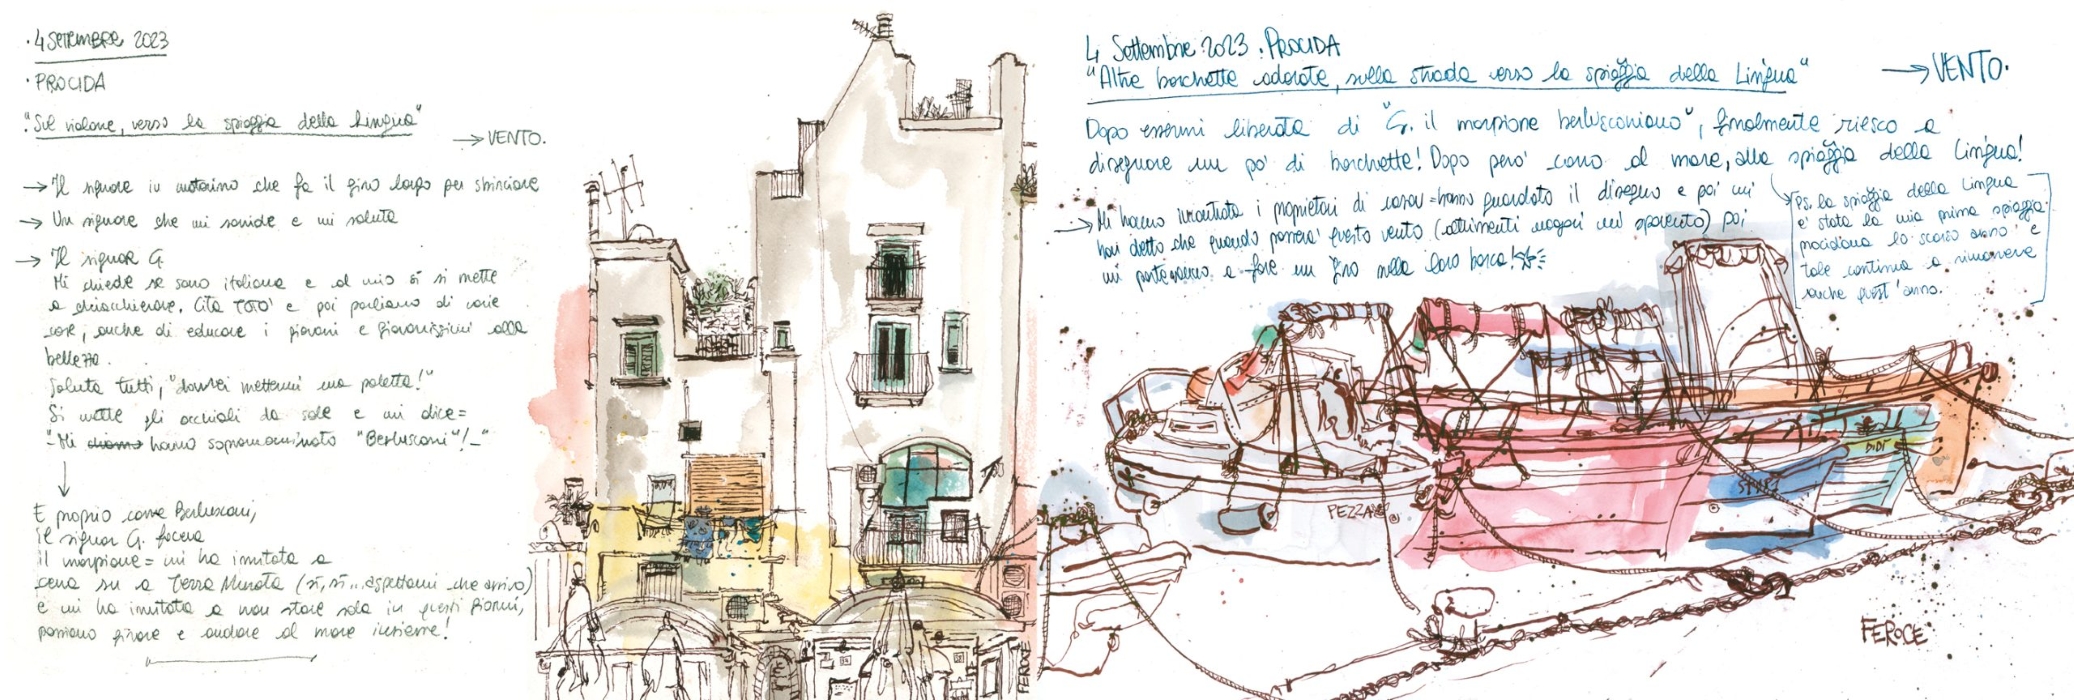 · 4 SETTEMBRE 2023
· PROCIDA
"Sul vialone, verso la spiaggia della Lingua"
→ VENTO.
→ Il signore in motorino che fa il giro largo per sbirciare
→ Un signore che mi sorride e mi saluta
→ Il signor G
Mi chiede se sono italiana e al mio sì si mette
a chiacchierare. Cita TOTO' e poi parliamo di varie
cose, anche di educare i giovani e giovanissimi alla
bellezza.
Saluta tutti, "dovrei mettermi una paletta!"
Si mette gli occhiali da sole e mi dice=
"-Mi chiamo hanno soprannominato "Berlusconi"!_"
E proprio come Berlusconi,
il signor G. faceva
il marpione= mi ha invitata a
cena su a Terra Murata (sì, sì... aspettami che arrivo)
e mi ha invitata a non stare sola in questi giorni,
possiamo girare e andare al mare insieme!
FEROCE
4 Settembre 2023 . PROCIDA
"Altre barchette adorate, sulla strada verso la spiaggia della Lingua"
→ VENTO.
Dopo essermi liberata di "G. il marpione berlusconiano", finalmente riesco a
disegnare un po' di barchette! Dopo però corro al mare, alla spiaggia della Lingua!
→ Mi hanno incontrata i proprietari di casa= hanno guardato il disegno e poi mi
han detto che quando passerà questo vento (altrimenti magari mi spavento) poi
mi porteranno a fare un giro nella loro barca!
Ps. la spiaggia della Lingua
e' stata la mia prima spiaggia
procidana lo scorso anno e
tale continua a rimanere
anche quest'anno.
PEZZA
BIDI'
FEROCE